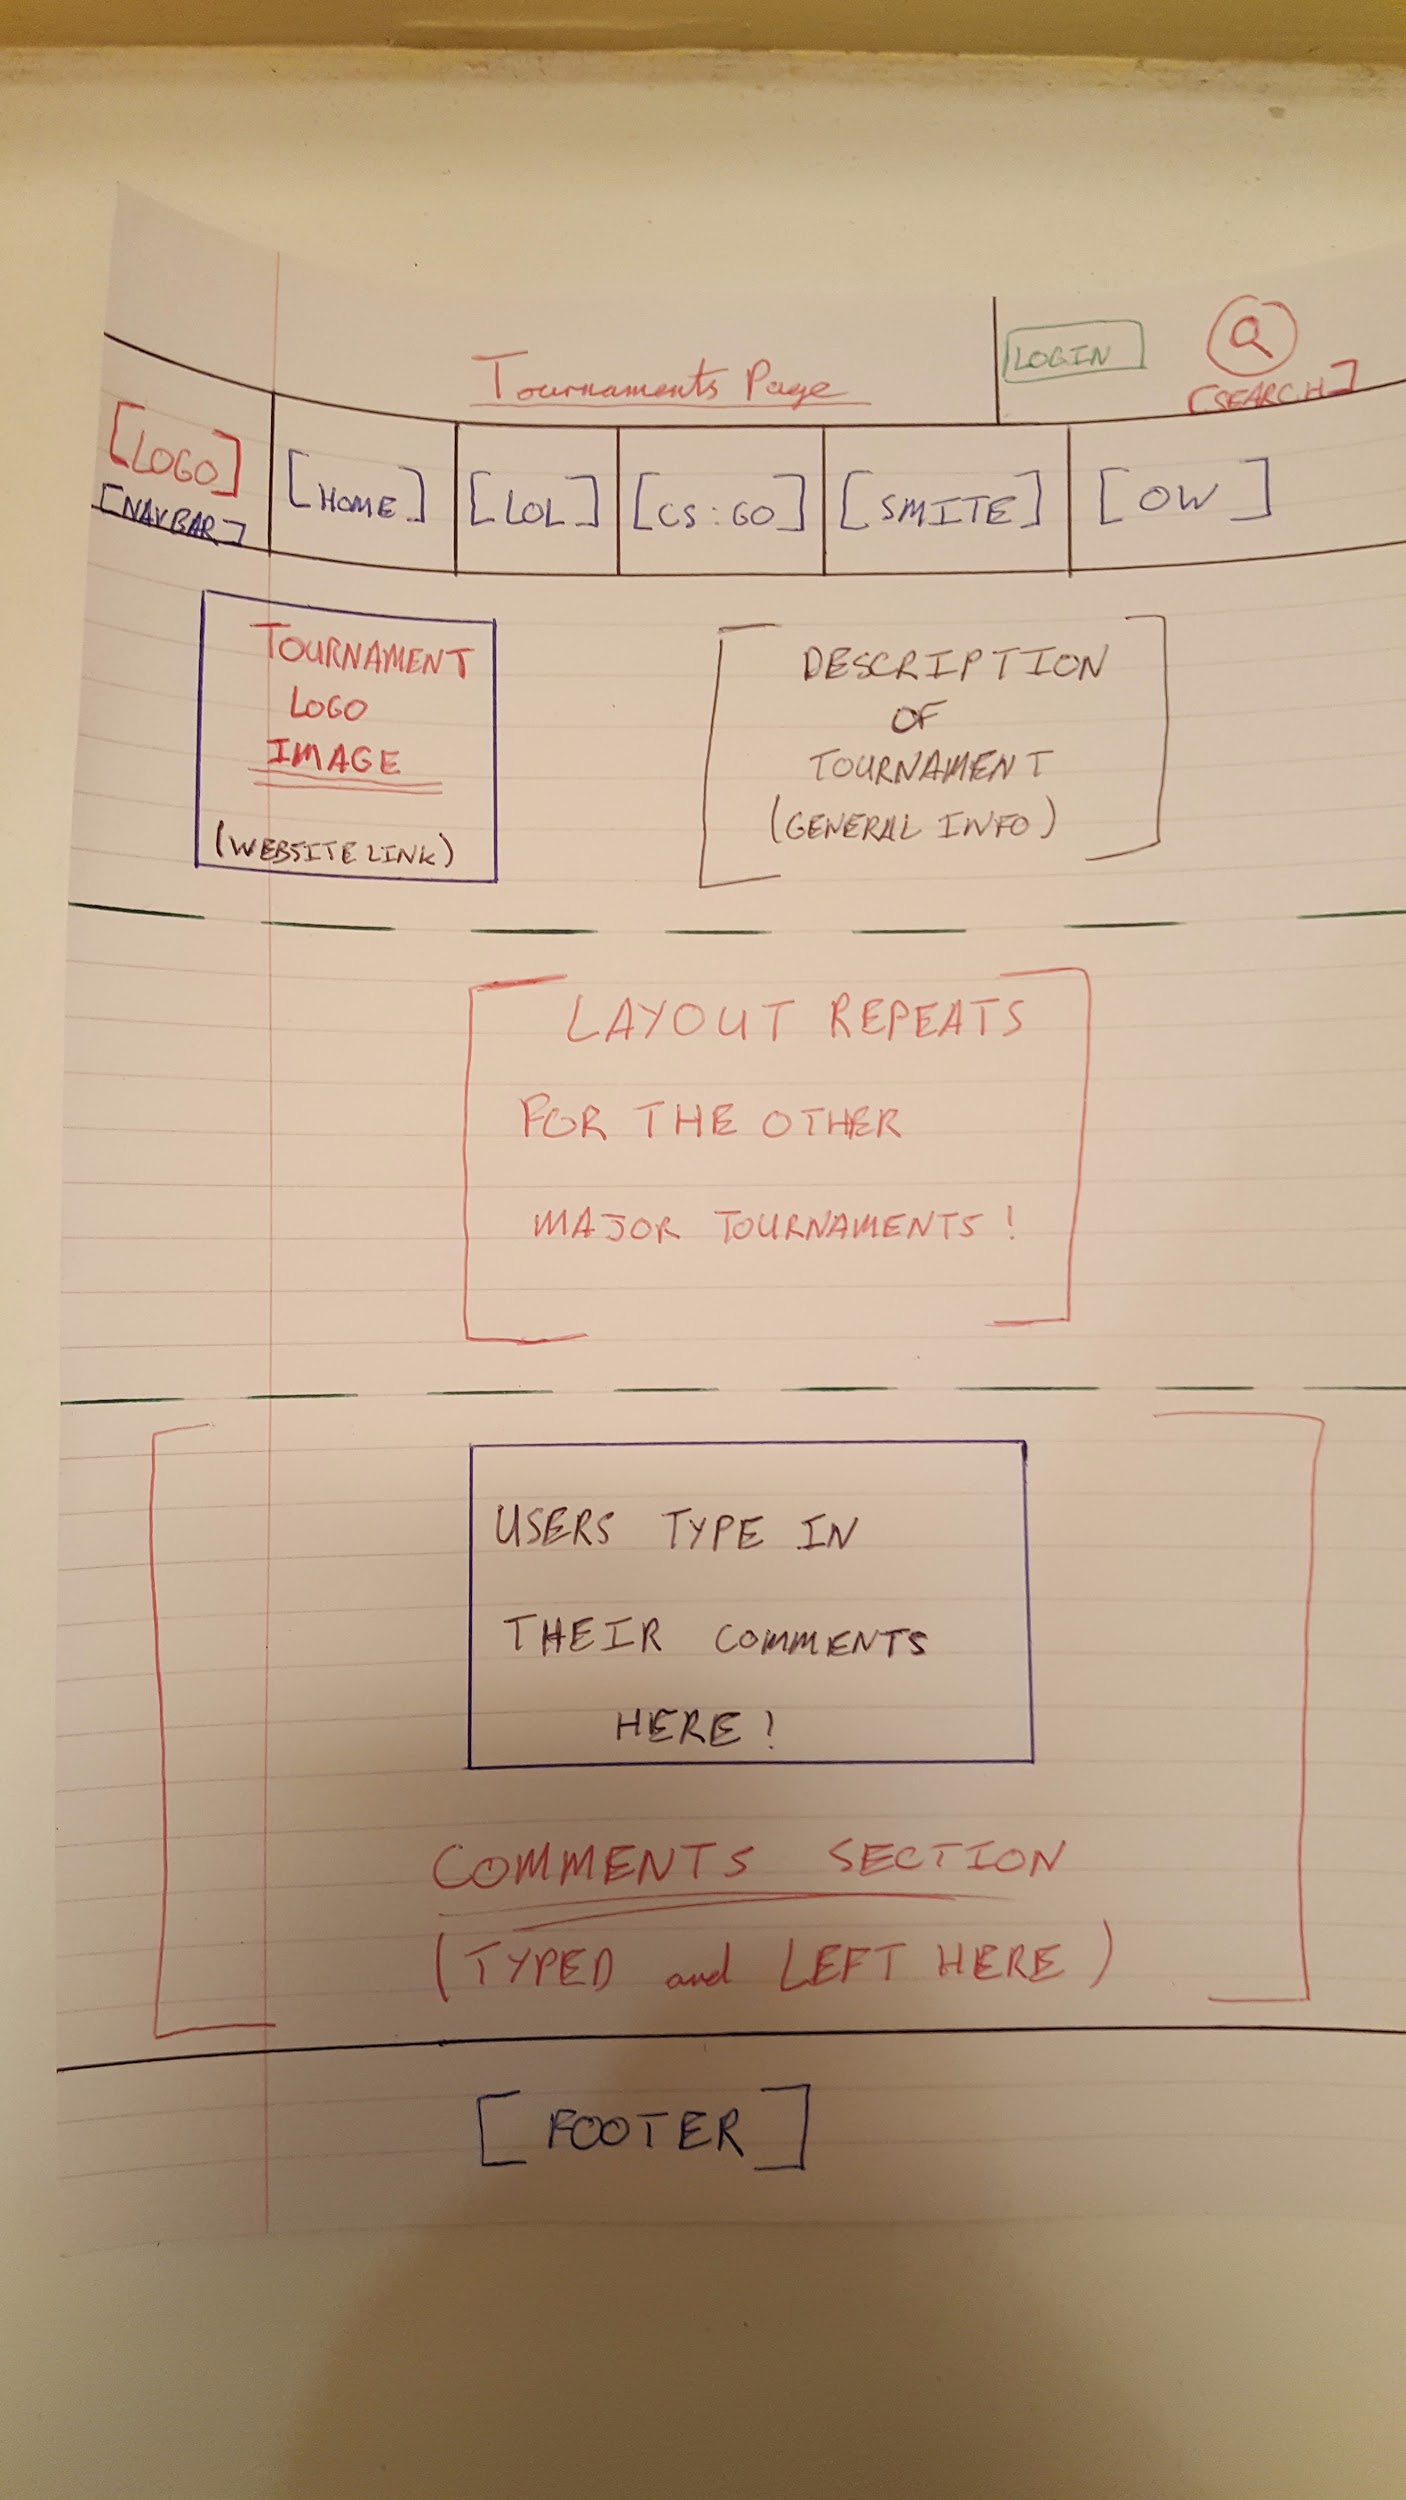 Tournaments Page
LOGIN
[SEARCH]
[LOGO]
[NAVBAR]
[HOME]
[LOL]
[CS:GO]
[SMITE]
[OW]
TOURNAMENT
LOGO
IMAGE
(WEBSITE LINK)
DESCRIPTION
OF
TOURNAMENT
(GENERAL INFO)
LAYOUT REPEATS
FOR THE OTHER
MAJOR TOURNAMENTS!
USERS TYPE IN
THEIR COMMENTS
HERE!
COMMENTS SECTION
(TYPED and LEFT HERE)
[FOOTER]